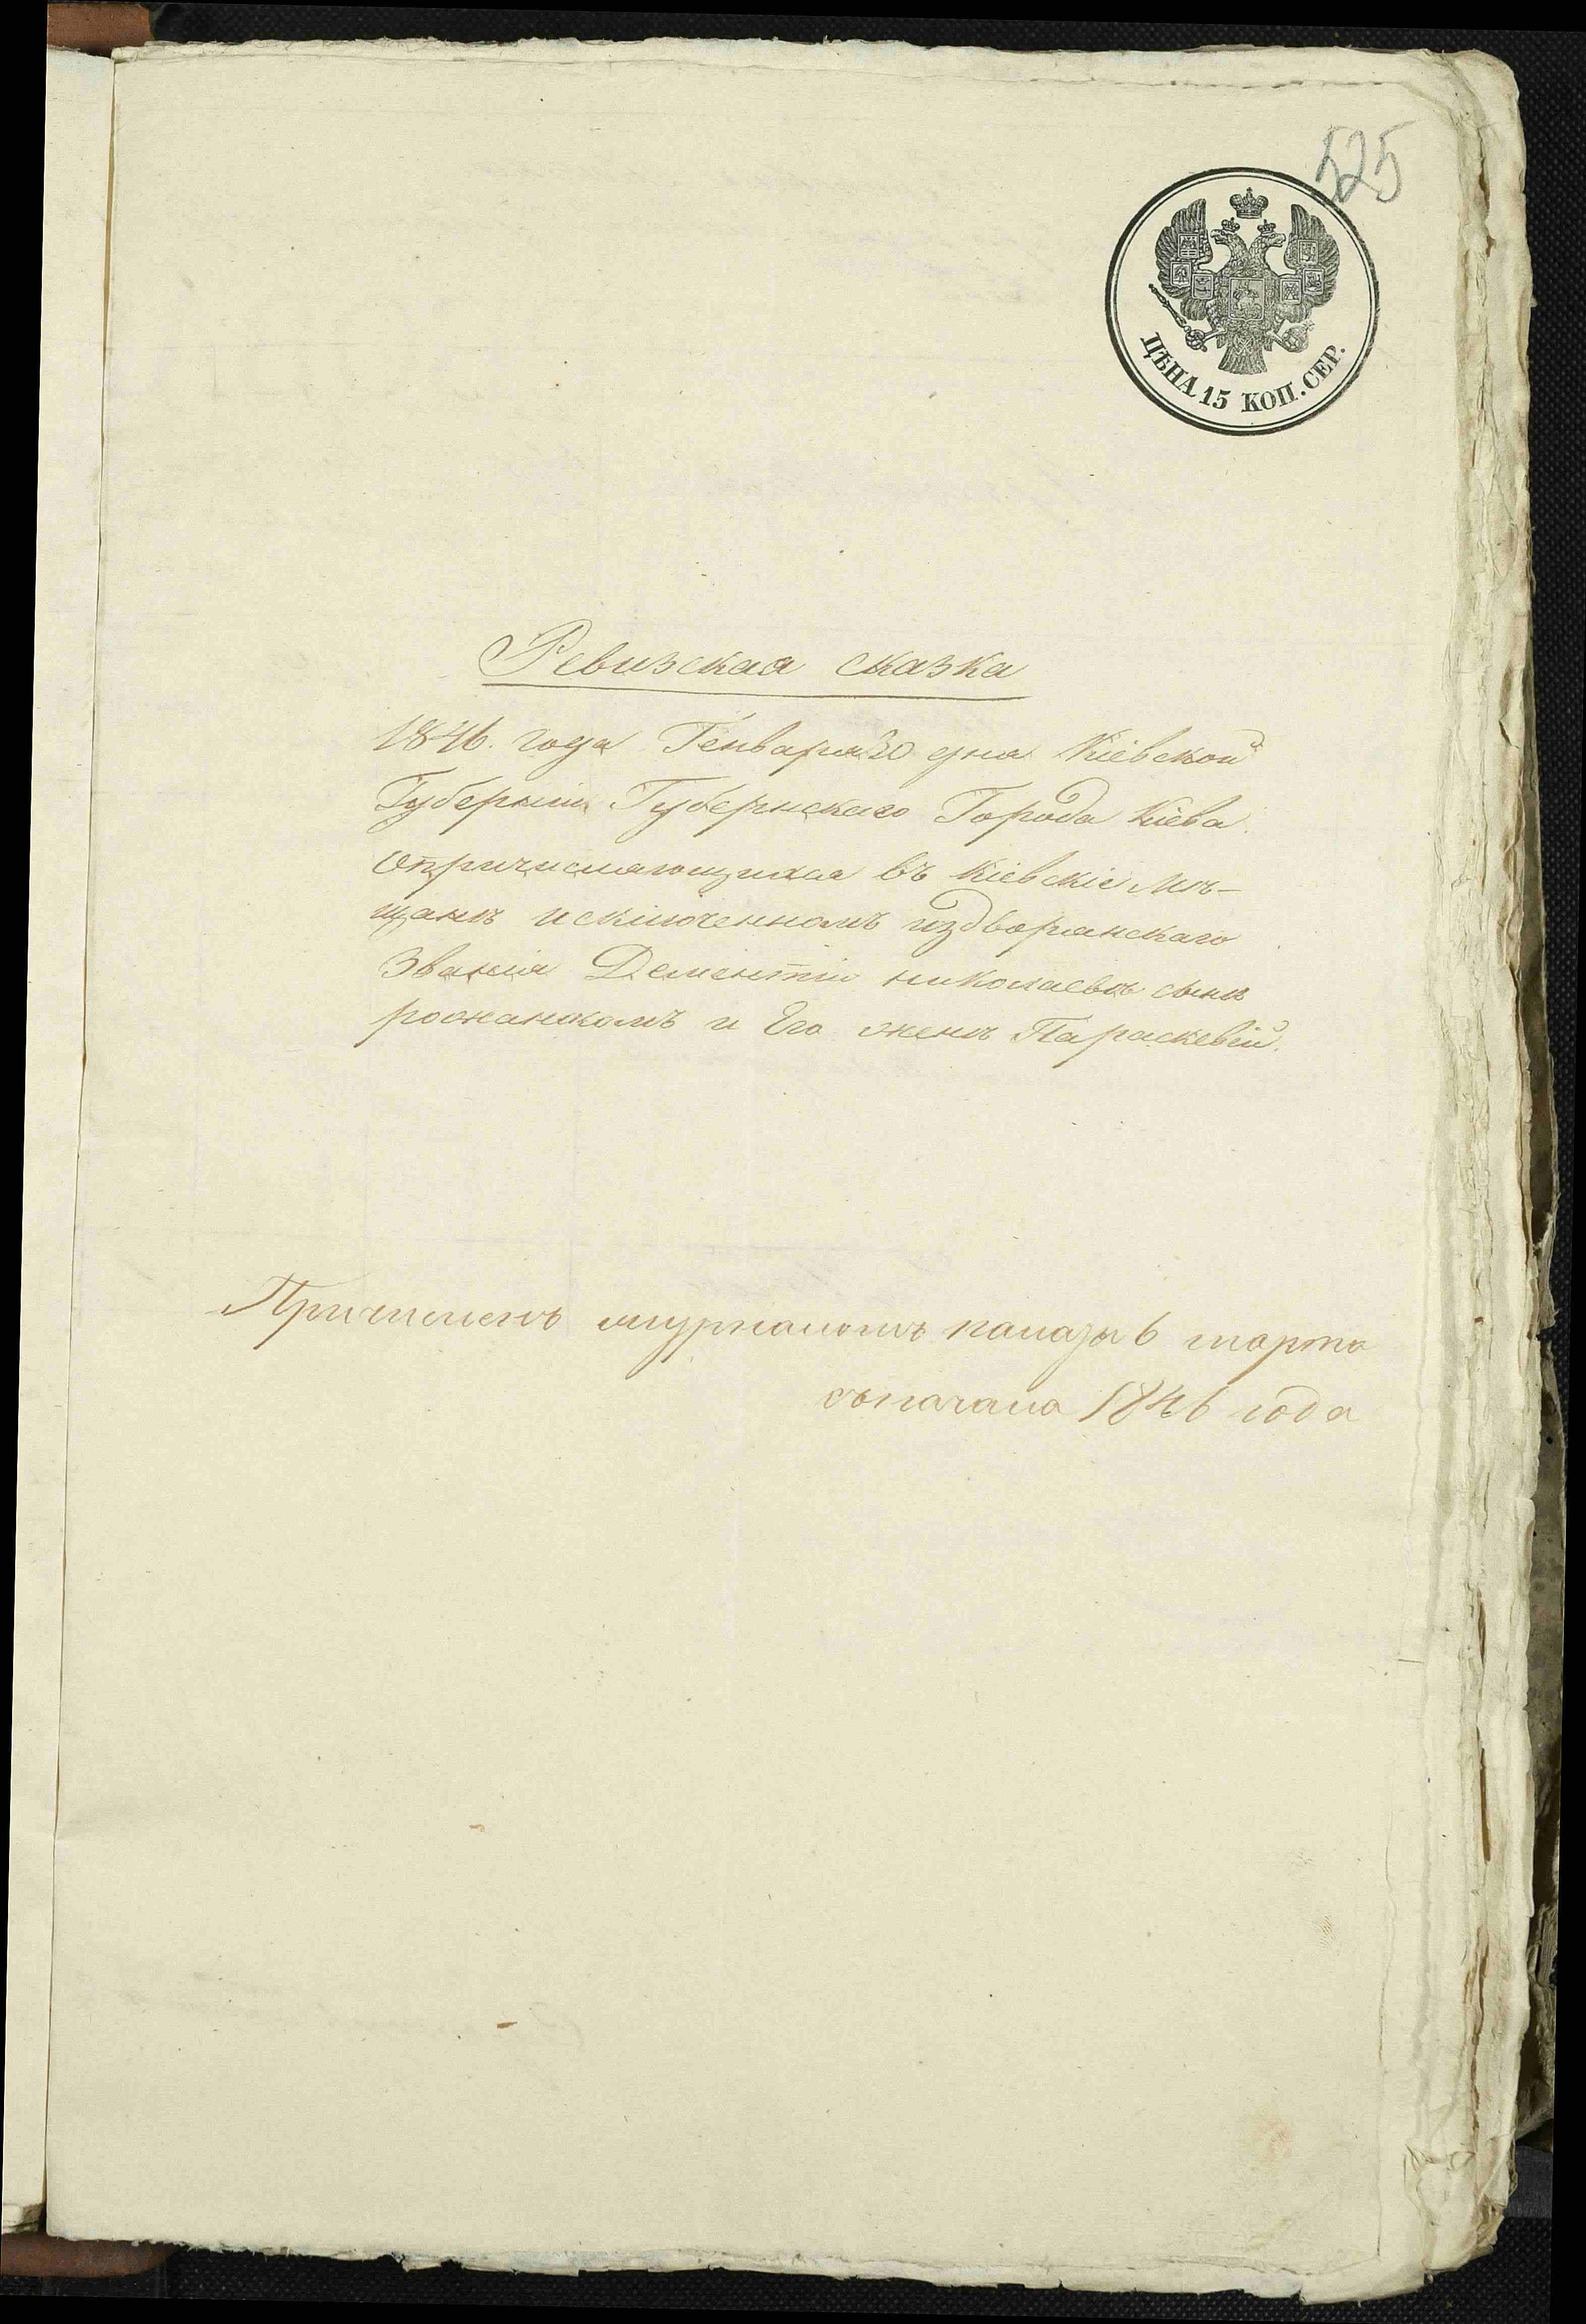 525
ЦѢНА 15 КОП. СЕР.
Ревизская сказка
1846. года Генваря 30 дня Кіевской
Губерніи Губернскаго Города Кіева
опричисляющихся въ Кіевскіе Мѣ-
щанѣ исключенномъ издворянскаго
Званія Дементіи николаевѣ сынѣ
рожанскомъ и Его женѣ Параскевіи.
Причисленъ журналомъ палаты 6 марта
съначала 1846 года